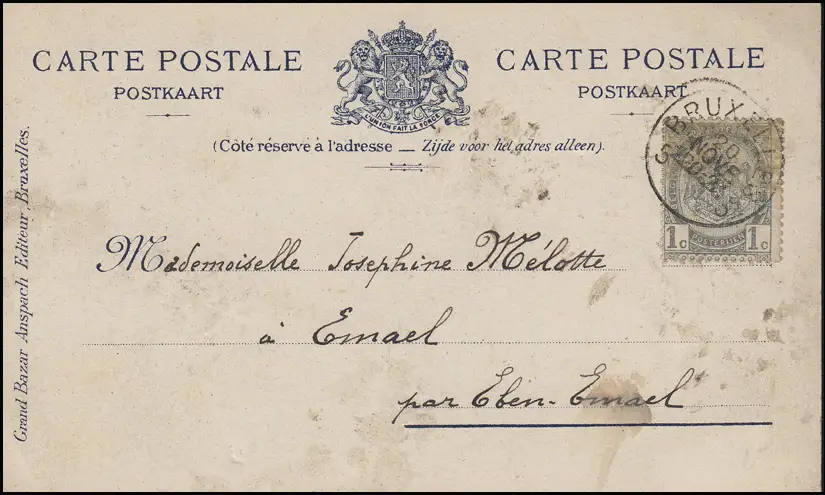 CARTE POSTALE
POSTKAART
L'UNION FAIT LA FORCE
CARTE POSTALE
POSTKAART
(Côté réservé à l'adresse — Zijde voor het adres alleen).
BRUXELL
20
NOV
1 c 1 c
Mademoiselle Josephine Mélotte
à Emael
par Eben-Emael
Grand Bazar Anspach Editeur Bruxelles.